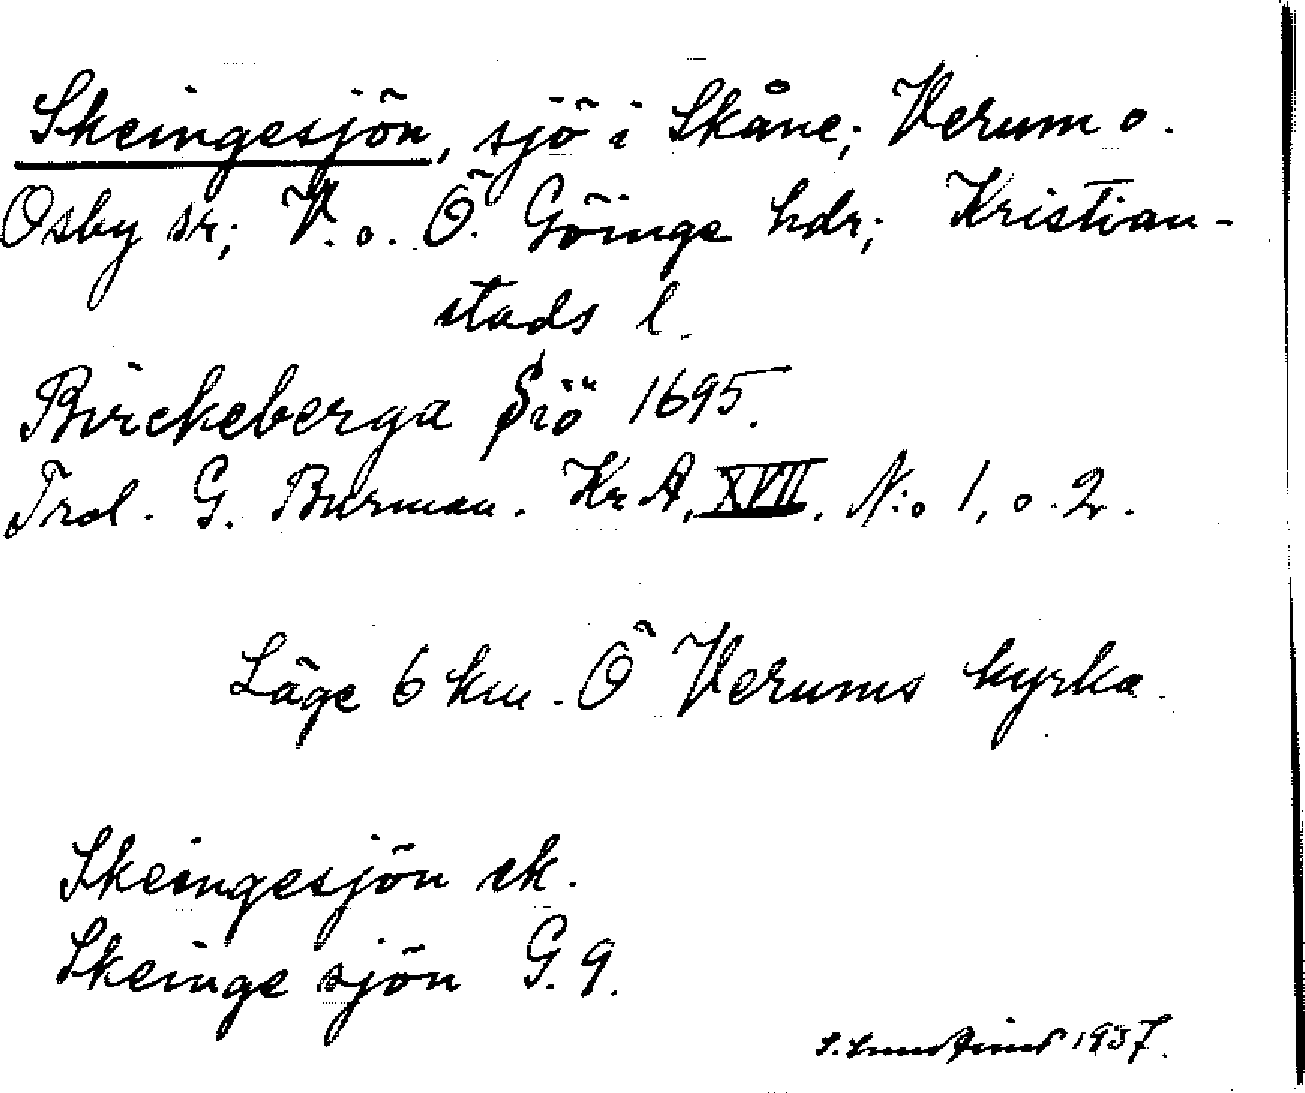 Skeingesjön, sjö i Skåne; Verum o.
Osby sr; V. o. Ö. Göinge hdr; Kristian-
stads l.
Birckeberga Siö 1695.
Trol. G. Burman. Kr A, XVII. N:o 1, o. 2.
Läge 6 km. Ö Verums kyrka.
Skeingesjön ek.
Skeinge sjön G. 9.
1937.